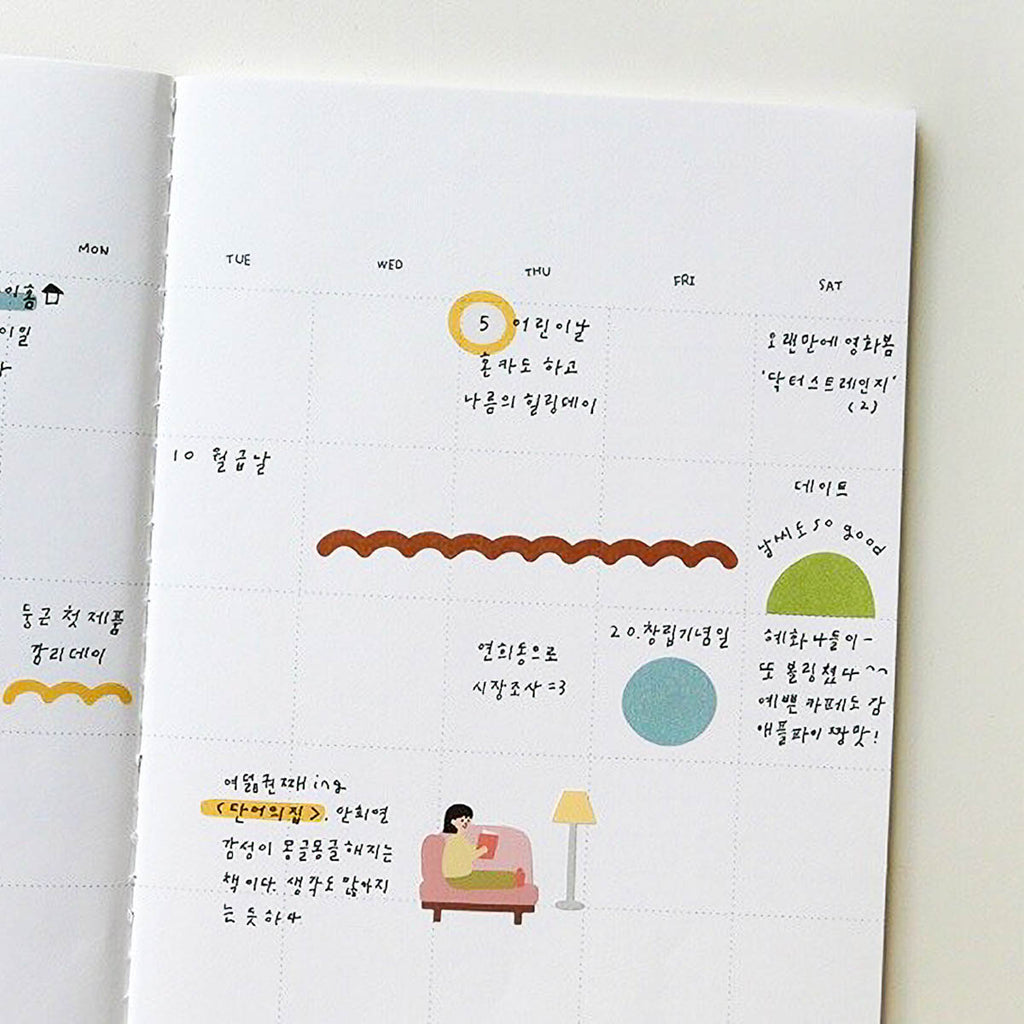 MON TUE WED THU FRI SAT
이홈
이일
5 어린이날
혼카도 하고
나름의 힐링데이
오랜만에 영화봄
'닥터스트레인지'
(2)
10 월급날
데이트
날씨도 so good
둥근 첫 제품
감리데이
연희동으로
시장조사 =3
20. 창립기념일
혜화 나들이~
또 볼링쳤다^^
예쁜 카페도 감
애플파이 짱맛!
여덟권째 ing
<단어의집>. 안희연
감성이 몽글몽글해지는
책이다. 생각도 많아지
는 듯하다